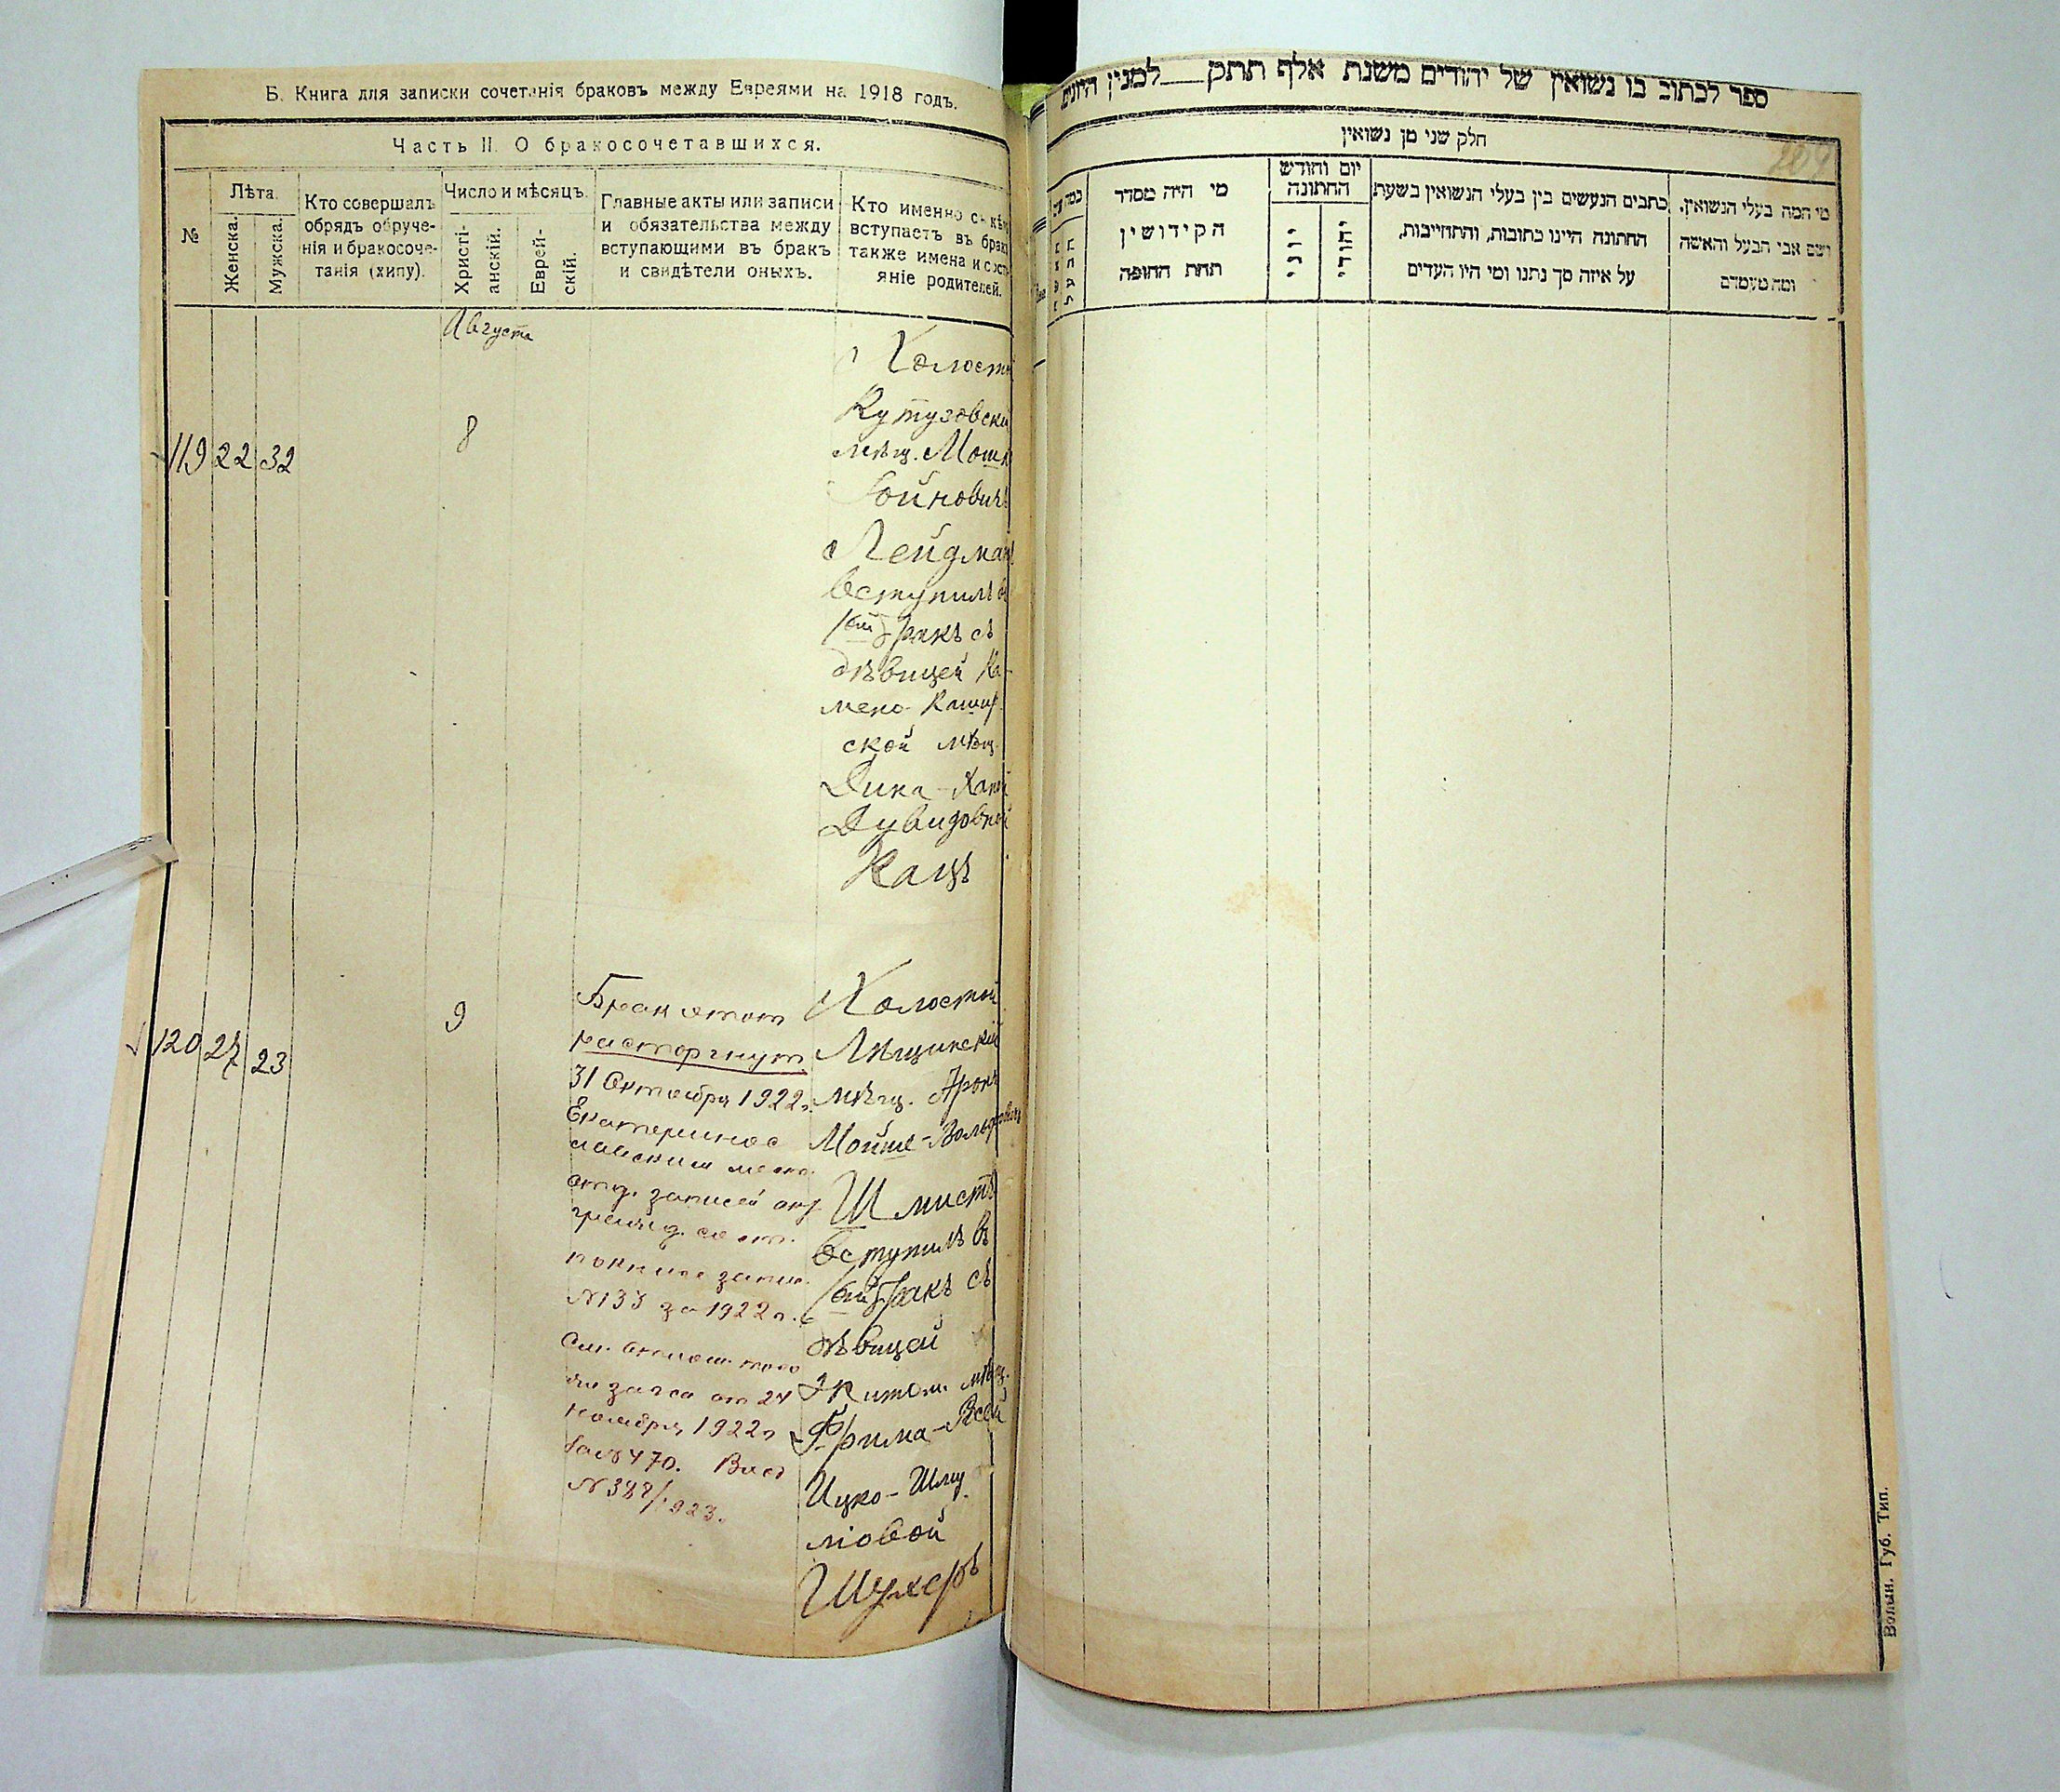 Б. Книга для записки сочетанія браковъ между Евреями на 1918 годъ.
Часть II. О бракосочетавшихся.
№
Лѣта.
Женска.
Мужска.
Кто совершалъ
обрядъ обруче-
нія и бракосоче-
танія (хипу).
Число и мѣсяцъ.
Христі-
анскій.
Еврей-
скій.
Главные акты или записи
и обязательства между
вступающими въ бракъ
и свидѣтели оныхъ.
Кто именно съ кѣмъ
вступаетъ въ бракъ
также имена и состо-
яніе родителей.
Августа
119 22 32
8
Холостой
Кутузовскій
мѣщ. Мошк
Гойновичъ
Лейдман
вступилъ въ
1ый бракъ съ
дѣвицей Ка-
мено-Кашир
ской мѣщ.
Дина-Хаей
Дувидовной
Кацъ
120 27 23
9
Брак этот
расторгнут
31 Октября 1922 г.
Екатеринос
лавским
отд. записей акт
гражд. сост.
запис.
N 133 за 1922 г.
См. отнош. того
же загса от 24
ноября 1922 г
за N 470. Вход
N 388/1923.
Холостой
Лѣщинскій
мѣщ. Арон
Мойше-Вольфовичъ
Шмистъ
вступилъ въ
1ый бракъ съ
дѣвицей
Житом. мѣщ.
Фрима-Рсей
Ицко-Шму
ліовой
Шухеръ
ספר לכתוב בו נשואין של יהודים משנת אלף תתק___למנין היונים
חלק שני מן נשואין
209
מי המה בעלי הנשואין.
ושם אבי הבעל והאשה
ומה מעמדם
כתבים הנעשים בין בעלי הנשואין בשעת
החתונה היינו כתובות, והתחייבות,
על איזה סך נתנו ומי היו העדים
יום וחודש
החתונה
יהודי
יוני
מי היה מסדר
הקידושין
תחת החופה
Волын. Губ. Тип.